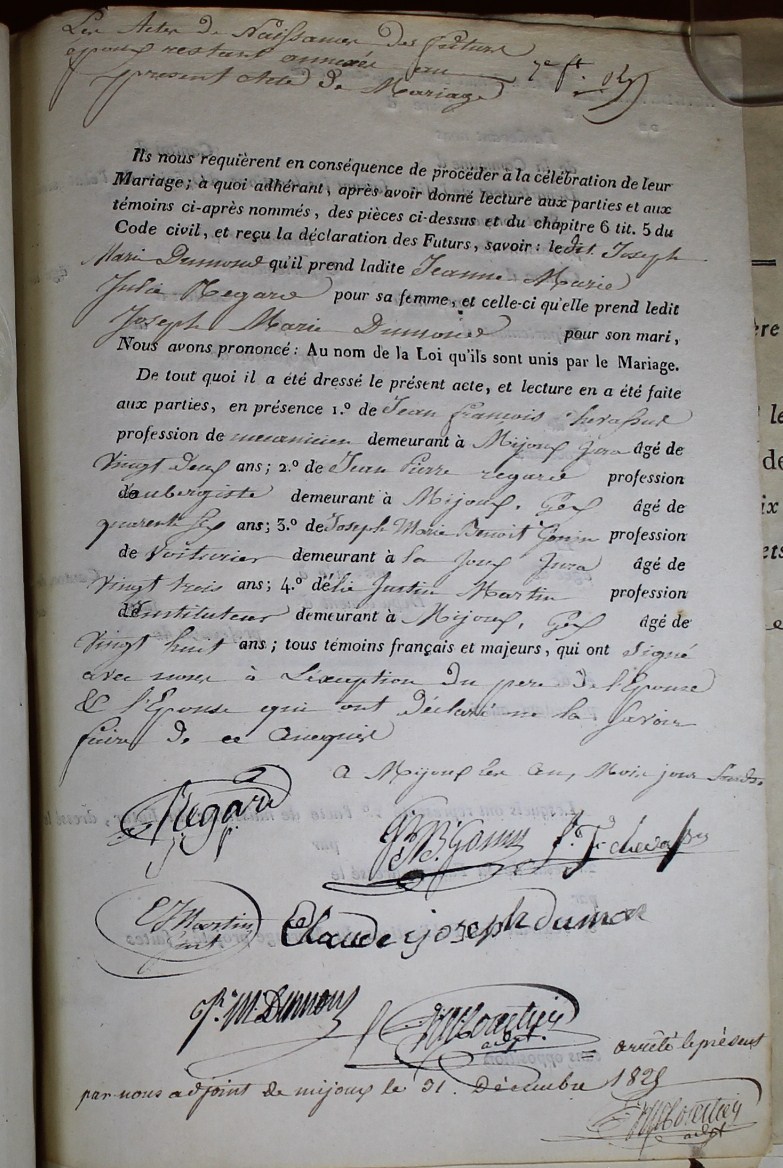 Les Actes de Naissances des futurs
époux restant annexés au
présent Acte de Mariage
Ils nous requièrent en conséquence de procéder à la célébration de leur
Mariage; à quoi adhérant, après avoir donné lecture aux parties et aux
témoins ci-après nommés, des pièces ci-dessus et du chapitre 6 tit. 5 du
Code civil, et reçu la déclaration des Futurs, savoir: ledit. Joseph
Marie Dumond qu'il prend ladite Jeanne Marie
Julie Regard pour sa femme, et celle-ci qu'elle prend ledit
Joseph Marie Dumond pour son mari,
Nous avons prononcé: Au nom de la Loi qu'ils sont unis par le Mariage.
De tout quoi il a été dressé le présent acte, et lecture en a été faite
aux parties, en présence 1.° de Jean françois
profession de mecanicien demeurant à Mijoux Jura âgé de
Vingt deux ans; 2.° de Jean Pierre regard profession
d'aubergiste demeurant à Mijoux, Gex âgé de
quarente six ans; 3.° de Joseph Marie Benoit Gonin profession
de Voiturier demeurant à la Joux Jura âgé de
Vingt trois ans; 4.° d'élie Justin Martin profession
d'instituteur demeurant à Mijoux, Gex âgé de
Vingt huit ans; tous témoins français et majeurs, qui ont Signé
avec nous à L'exception du pere de l'Epouse
& l'Epouse qui ont déclaré ne la Savoir
faire de ce Enequis
A Mijoux les an, Mois jour
Regard
J. M. B. Gonin J. F. chevassus
E J Martin
Claude joseph dumon
J. M. Dumond
adjt.
arrêté le présent
par nous adjoint de mijoux le 31. Décembre 1825
adjt